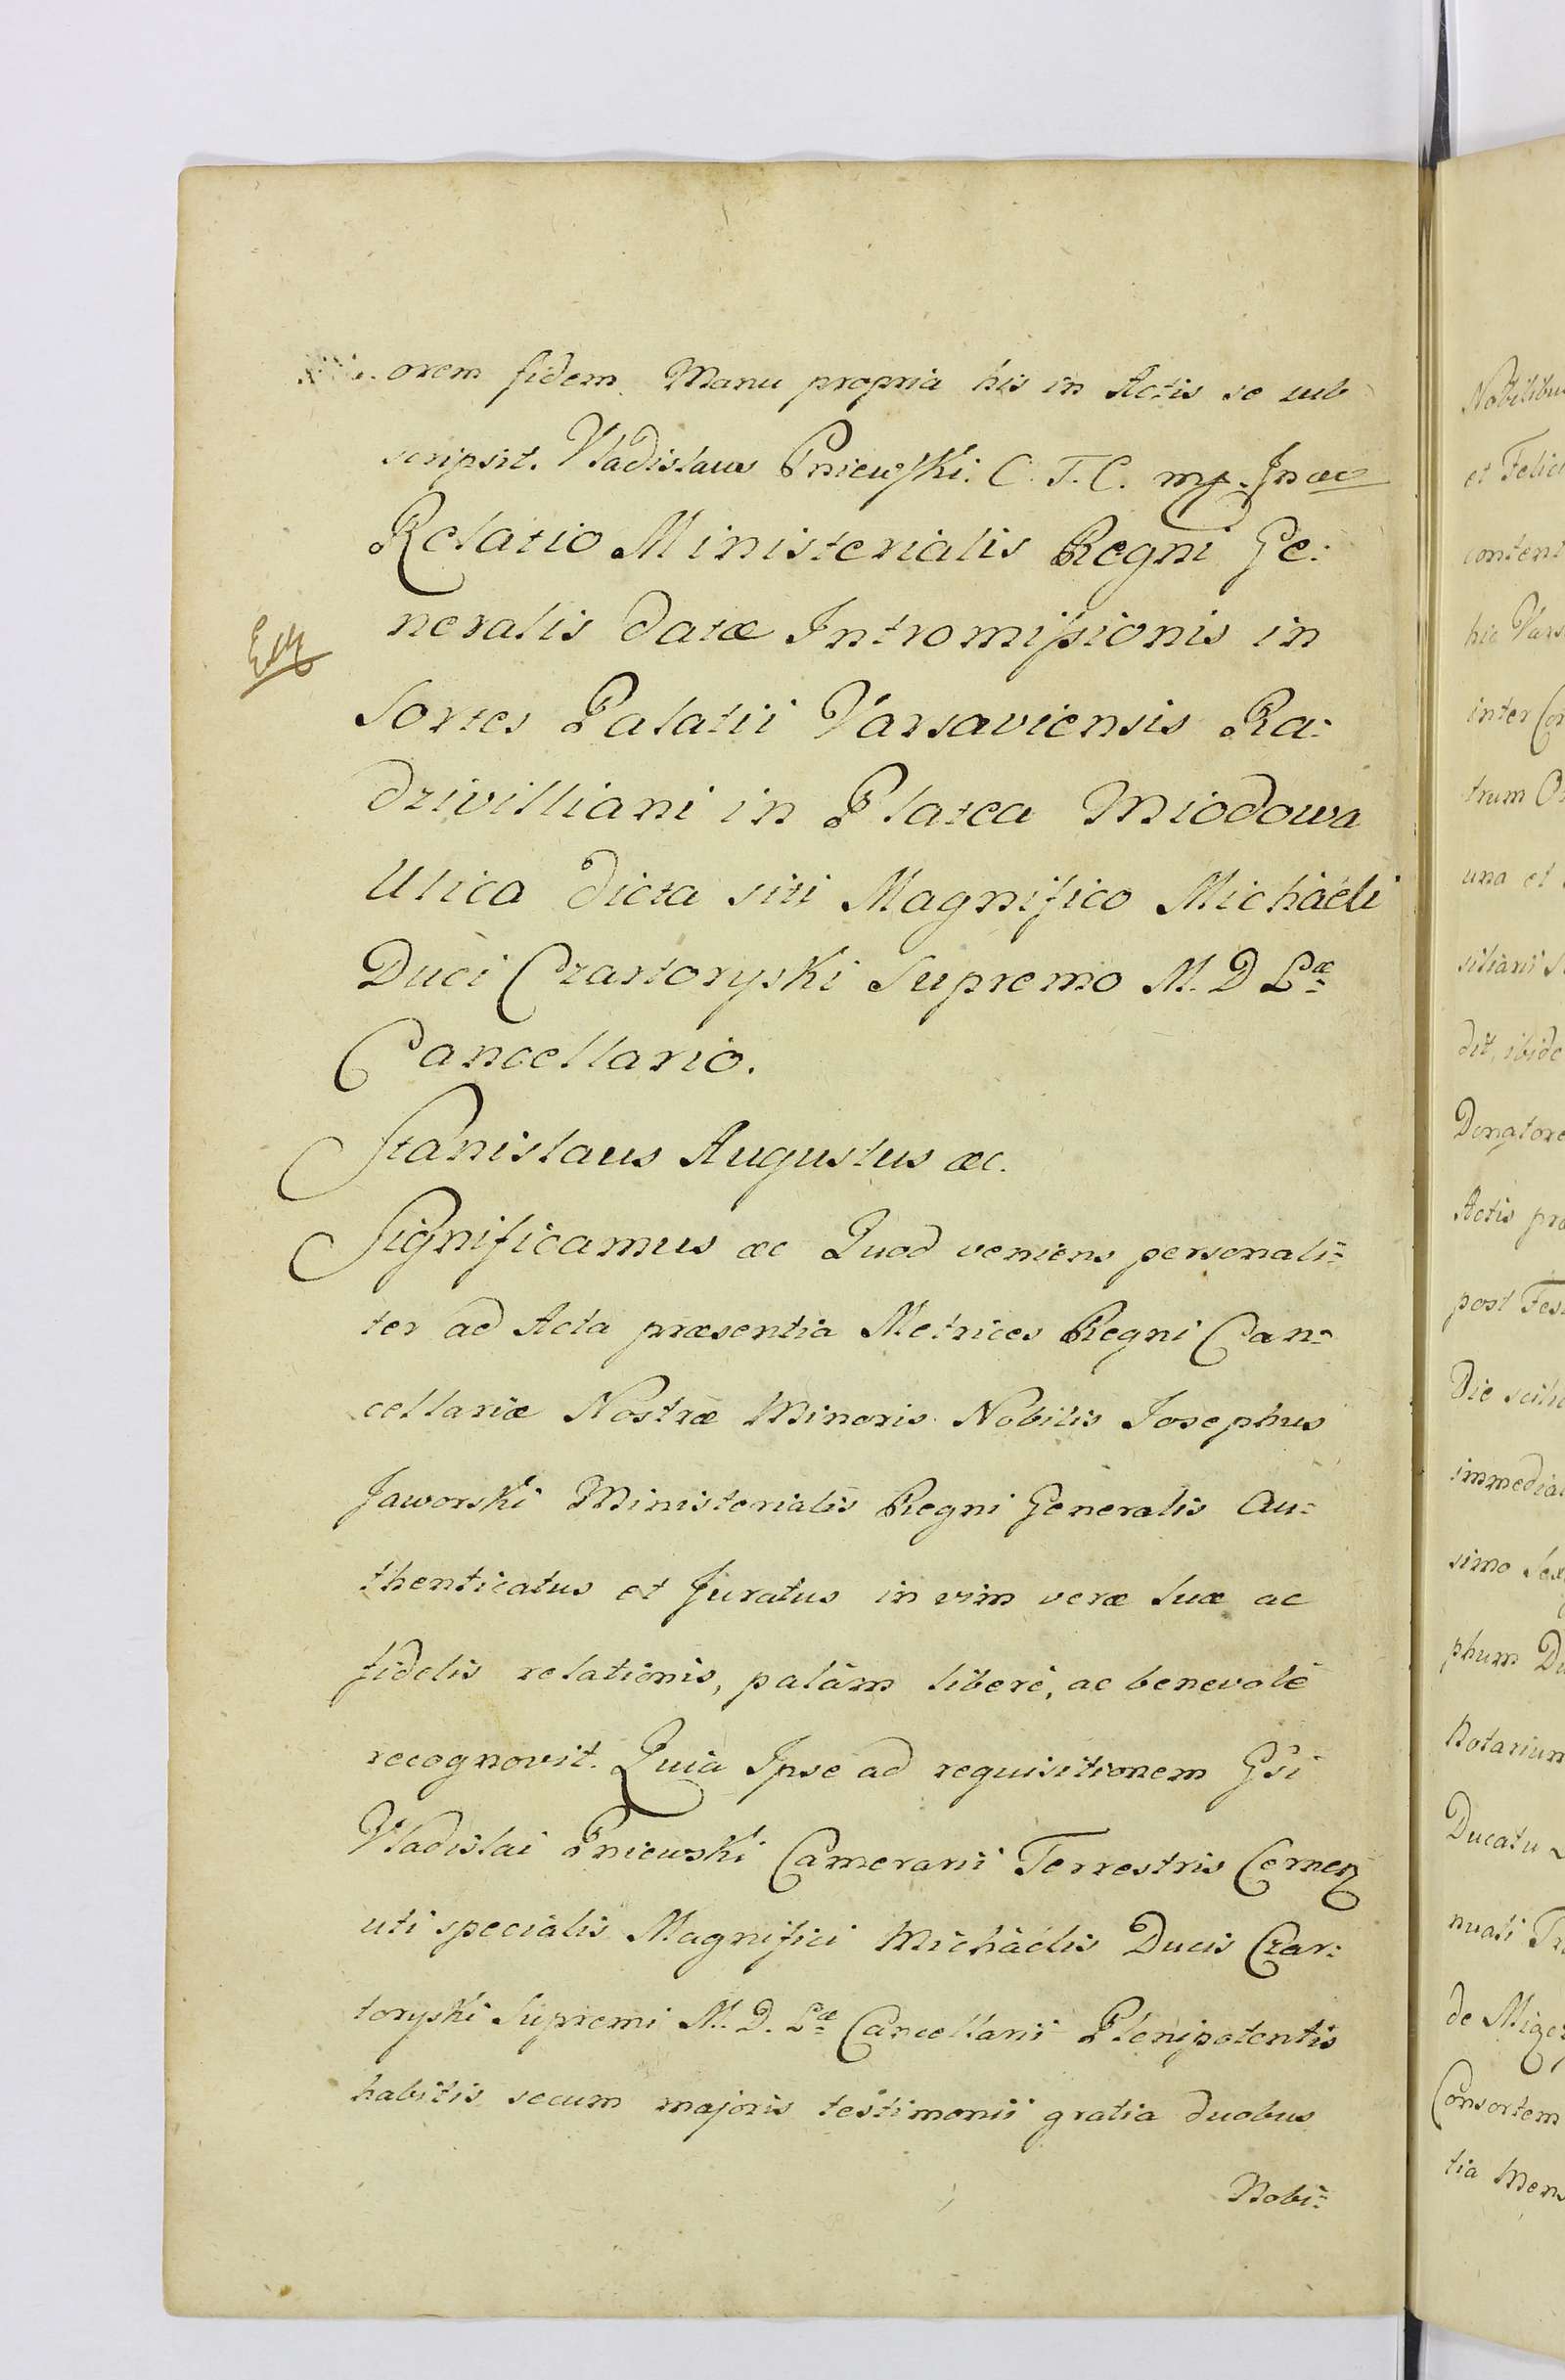 orem fidem Manu propria his in Actis se sub
scripsit. Vladislaus Pniewski. C. T. C. mp.
Relatio Ministerialis Regni Ge:
neralis datæ Intromissionis in
Sortes Palatii Varsaviensis Ra:
dzivilliani in Platea Miodowa
Ulica dicta siti Magnifico Michaëli
Duci Czartoryski Supremo M. D Læ
Cancellario.
Stanislaus Augustus æc.
Significamus æc Quod veniens personali=
ter ad Acta præsentia Metrices Regni Can=
cellariæ Nostræ Minoris Nobilis Josephus
Jaworski Ministerialis Regni Generalis Au:
thenticatus et Juratus in vim veræ suæ ac
fidelis relationis, palàm liberè, ac benevolè
recognovit. Quia Ipse ad requisitionem Gsi
Vladislai Pniewski Camerarii Terrestris
uti specialis Magnifici Michaëlis Ducis Czar:
toryski Supremi M. D. Læ Cancellarii Plenipotentis
habitis secum majoris testimonii gratia duobus
Nobi=
Nobilibus
et Felici
content
hic Vars
inter Con
trum
una et
siliarii
dit, ibide
Actis pro
post Fes
Die scili
immedia
simo
phum Du
Notarium
Ducatu
nuali
de
Consortem
tia Mens